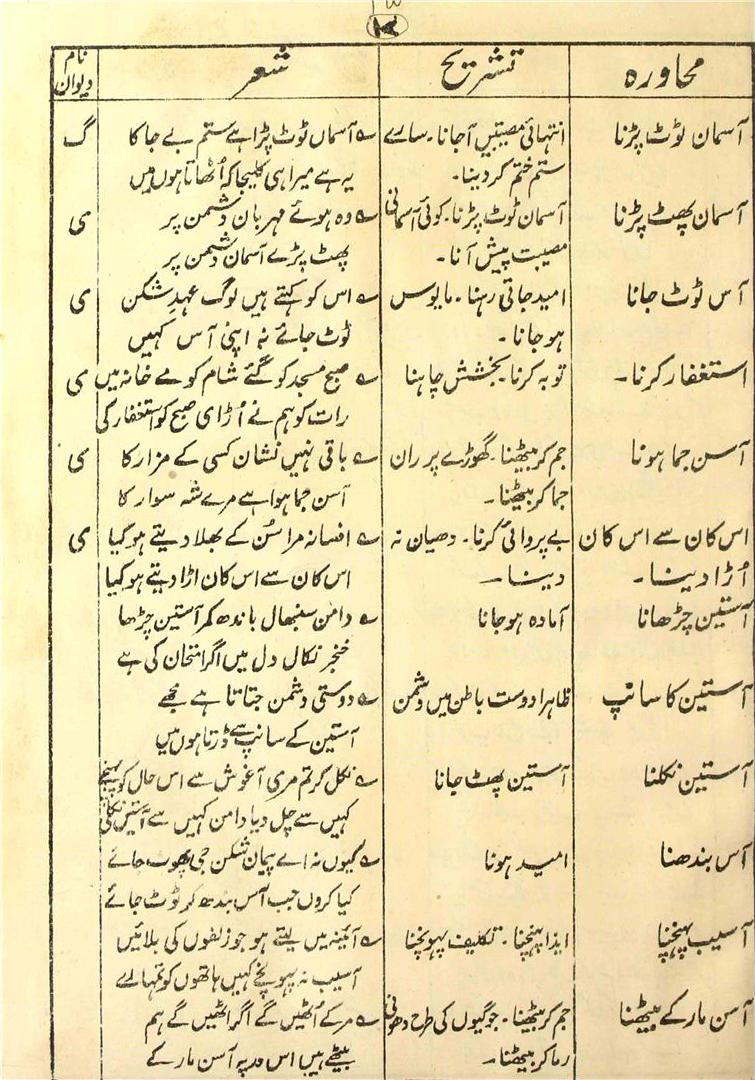 ۱۳
محاورہ تشریح شعر نام دیوان
آسمان ٹوٹ پڑنا انتہائی مصیبتیں آجانا۔ سارے ؎ آسماں ٹوٹ پڑا ہے ستم بے جا کا گ
ستم ختم کردینا۔ یہ ہے میرا ہی کلیجا کہ اُٹھاتا ہوں میں
آسمان پھٹ پڑنا آسمان ٹوٹ پڑنا۔ کوئی آسمانی ؎ وہ ہوئے مہربان دشمن پر ی
مصیبت پیش آنا۔ پھٹ پڑے آسمان دشمن پر
آس ٹوٹ جانا امید جاتی رہنا۔ مایوس ؎ اس کو کہتے ہیں لوگ عہد شکن ی
ہوجانا۔ ٹوٹ جائے نہ اپنی آس کہیں
استغفار کرنا۔ توبہ کرنا۔ بخشش چاہنا ؎ صبح مسجد کو گئے شام کو مے خانہ میں ی
رات کو ہم نے اُڑائی صبح کو استغفار کی
آسن جما ہونا جم کر بیٹھنا۔ گھوڑے پر ران ؎ باقی نہیں نشان کسی کے مزار کا ی
جما کر بیٹھنا۔ آسن جما ہوا ہے مرے شہ سوار کا
اس کان سے اس کان بے پروائی کرنا۔ دھیان نہ ؎ افسانہ مرا سُن کے بھلا دیتے ہو گیا ی
اُڑا دینا۔ دینا۔ اس کان سے اس کان اڑا دیتے ہو کیا
آستین چڑھانا آمادہ ہوجانا ؎ دامن سنبھال باندھ کمر آستین چڑھا
خنجر نکال دل میں اگر امتحان کی ہے
آستین کا سانپ ظاہرا دوست باطن میں دشمن ؎ دوستی دشمن جتاتا ہے مجھے
آستین کے سانپ سے ڈرتا ہوں میں
آستین نکلنا آستین پھٹ جانا ؎ نکل کر تم مری آغوش سے اس حال کو پہنچے
کہیں سے چل دیا دامن کہیں سے آستیں نکلی
آس بندھنا امید ہونا ؎ کیوں نہ اے پیمان شکن جی چھوٹ جائے
کیا کروں جب آس بندھ کر ٹوٹ جائے
آسیب پہنچنا ایذا پہنچنا۔ تکلیف پہونچنا ؎ آئینہ میں لیتے ہو جو زلفوں کی بلائیں
آسیب نہ پہونچے کہیں ہاتھوں کو تمہارے
آسن مار کے بیٹھنا جم کر بیٹھنا۔ جوگیوں کی طرح دھونی ؎ مر کے اُٹھیں گے اگر اٹھیں گے ہم
رما کر بیٹھنا۔ بیٹھے ہیں اس در پہ آسن مار کے